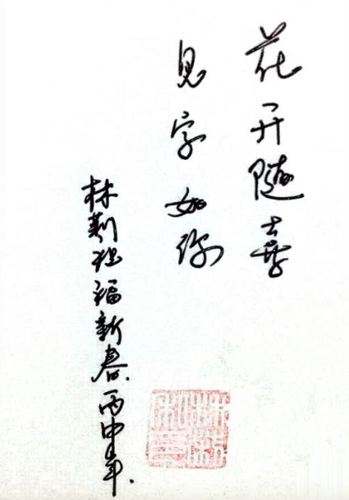 花开随喜
见字如
林 祝福新春.丙申年.